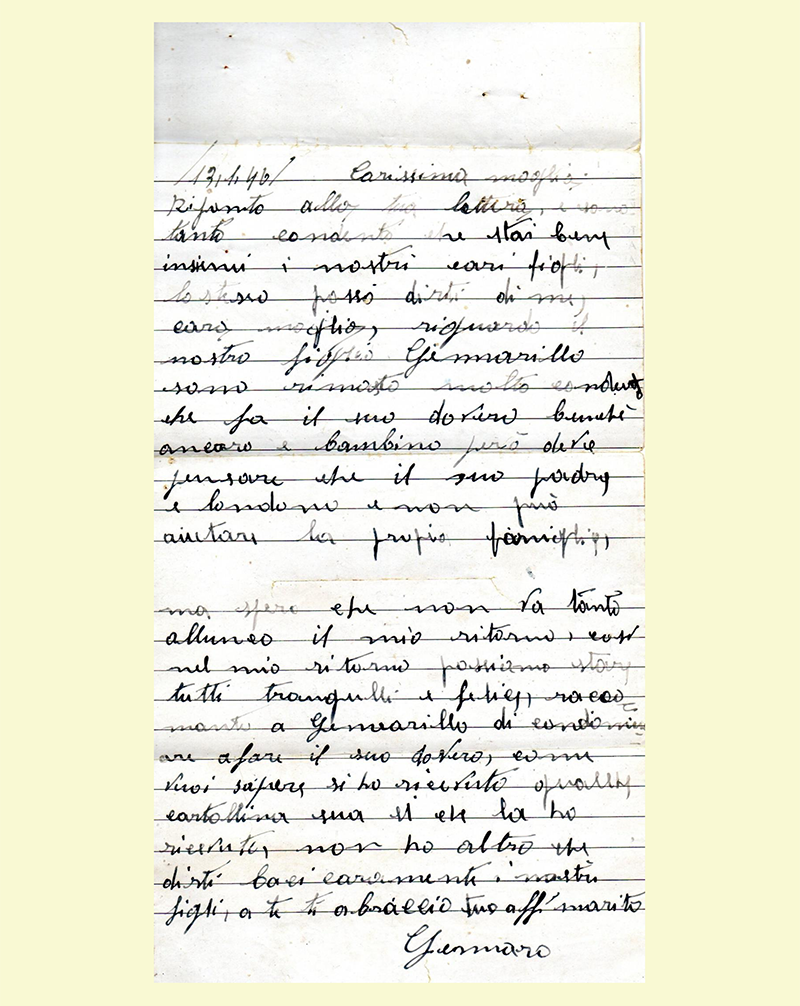 /13,1,46/ Carissima moglie
Rifonto alla tua lettera, e sono
tanto condento che stai bene
insiemi i nostri cari figli,
lo stesso posso dirti di me,
cara moglie, riguardo il
nostro figlio Gennarillo
sono rimasto molto condento
che fa il suo dovero benche
ancoro e bambino però deve
pensare che il suo padre
e londono e non può
aiutare la propio famiglie,
ma spero che non va tanto
allunco il mio ritorno, così
nel mio ritorno possiamo stare
tutti tranquilli e felice, racco
manto a Gennarillo di condiniu
are afare il suo dovero, come
vuoi sapere si ho ricevuto qualche
cartollina sua si che la ho
ricevute, non ho altro che
dirti baci caramente i nostri
figli, a te ti abraccio tuo aff. marito
Gennaro